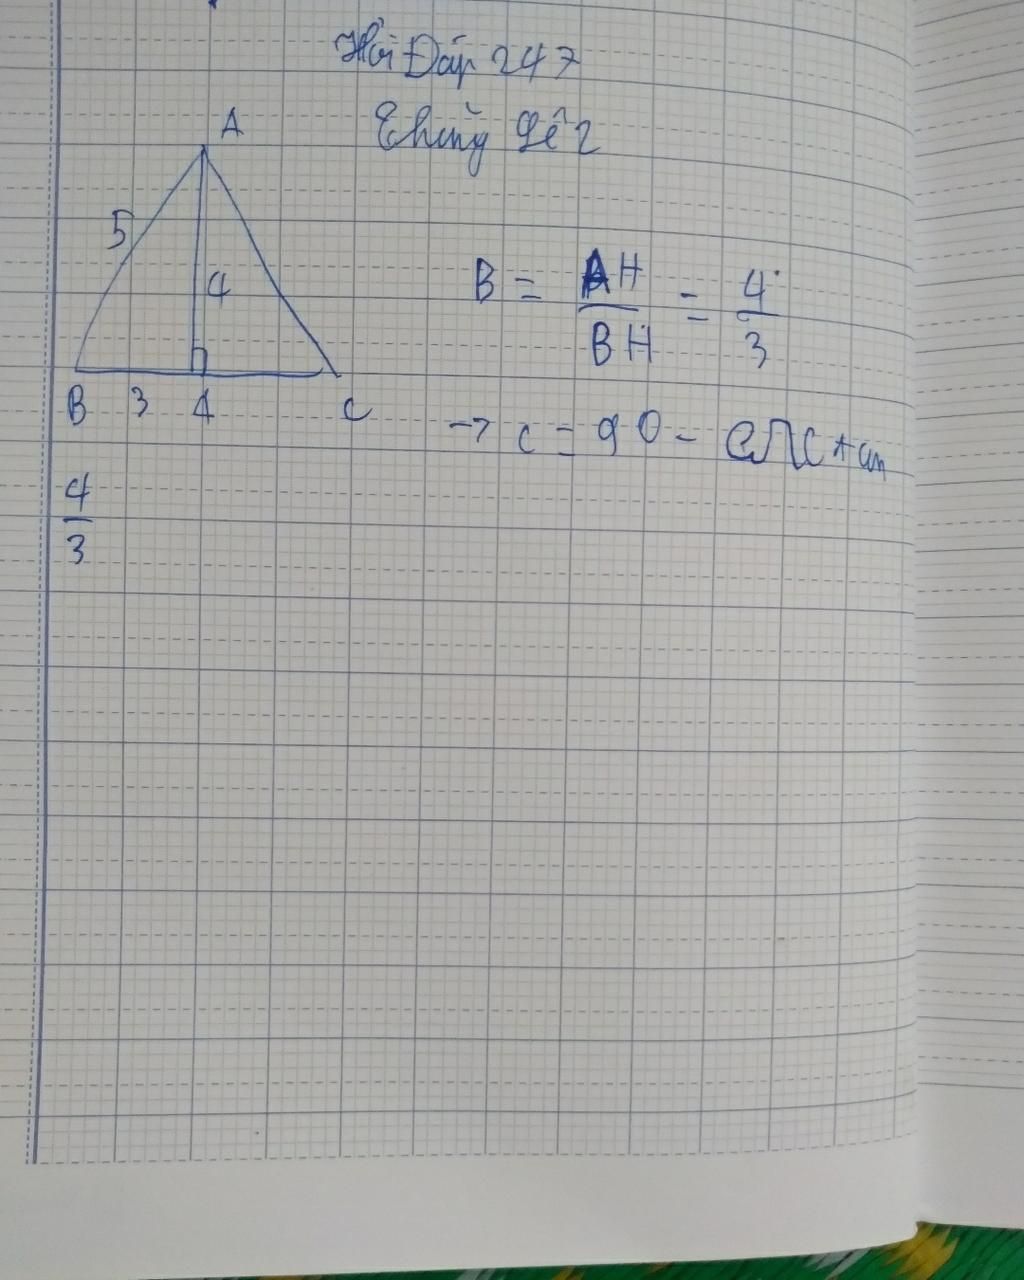 Hỏi Đáp 247
A
5
4
B 3 4 C
B = AH / BH = 4 / 3
→ C = 90 - arctan
4 / 3